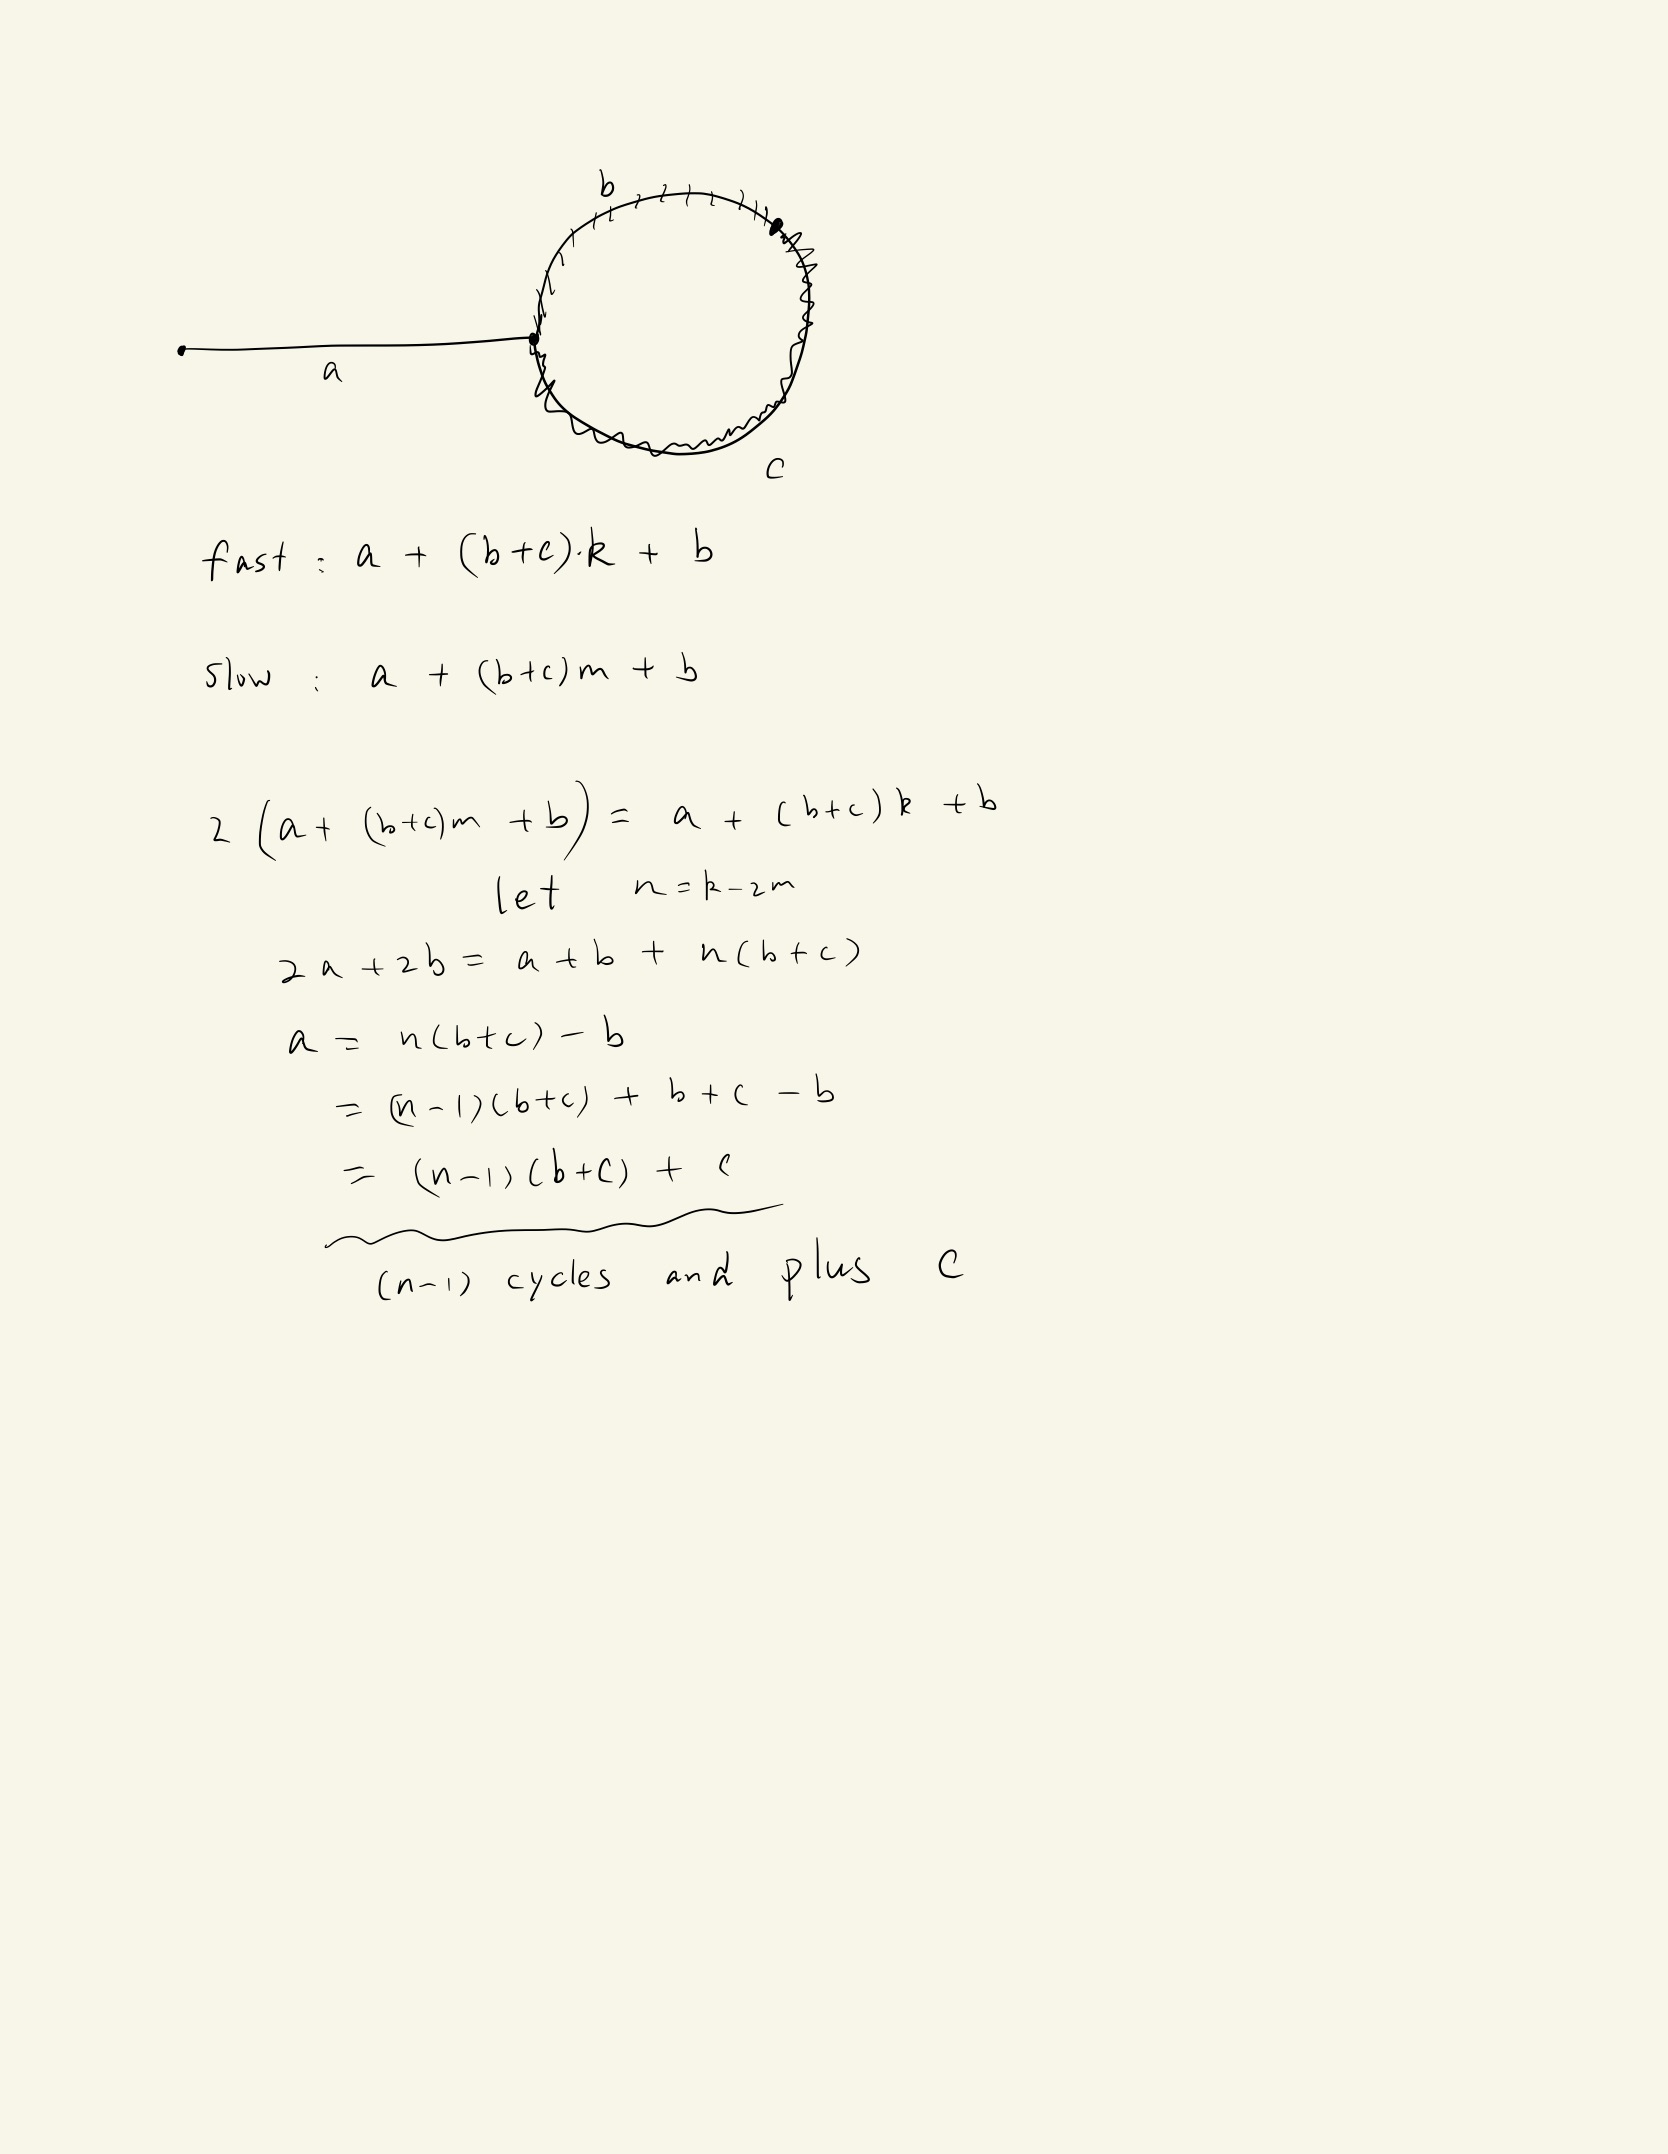 b
a
c
fast : a + (b+c)·k + b
slow : a + (b+c)m + b
2 (a + (b+c)m + b) = a + (b+c)k + b
let n = k - 2m
2a + 2b = a + b + n(b+c)
a = n(b+c) - b
= (n-1)(b+c) + b + c - b
= (n-1)(b+c) + c
(n-1) cycles and plus c